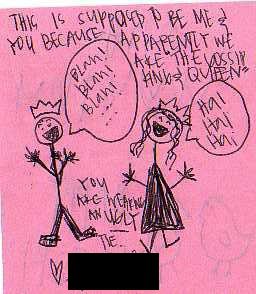 THIS IS SUPPOSED TO BE ME &
YOU BECAUSE APPARENTLY WE
ARE THE GOSSIP
KING & QUEEN
BLAH!
BLAH!
BLAH!
...
HA!
HA!
HA!
YOU
ARE WEARING
AN UGLY
TIE.